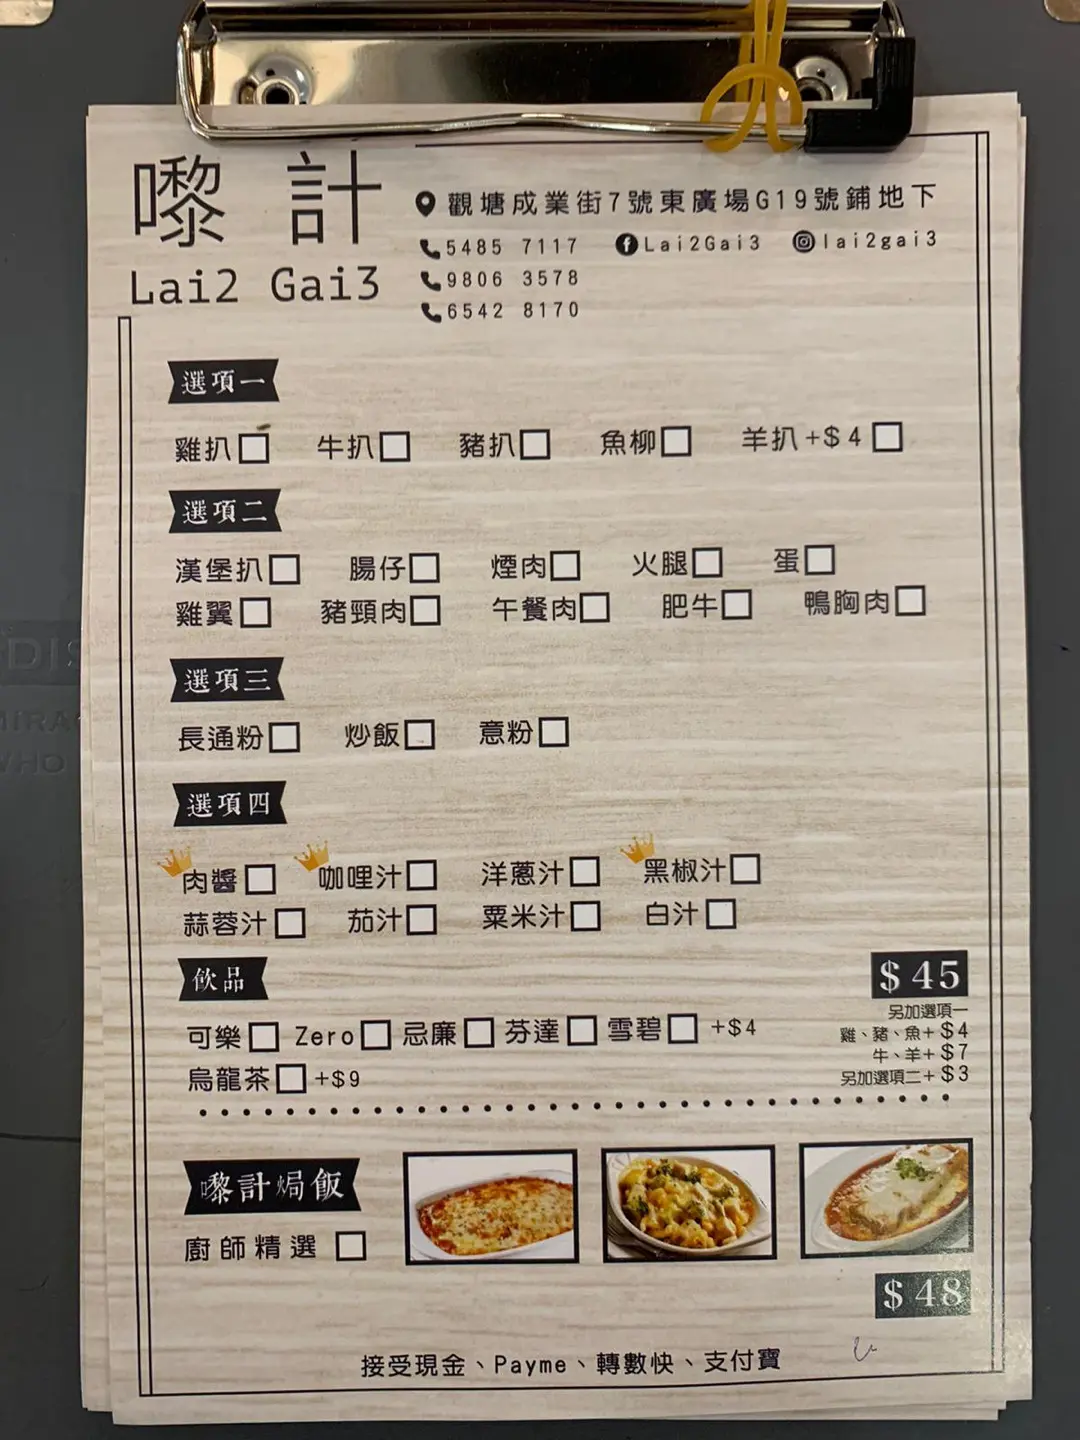 嚟計
Lai2 Gai3
觀塘成業街7號東廣場G19號鋪地下
5485 7117 Lai2Gai3 lai2gai3
9806 3578
6542 8170
選項一
雞扒 牛扒 豬扒 魚柳 羊扒+$4
選項二
漢堡扒 腸仔 煙肉 火腿 蛋
雞翼 豬頸肉 午餐肉 肥牛 鴨胸肉
選項三
長通粉 炒飯 意粉
選項四
肉醬 咖哩汁 洋蔥汁 黑椒汁
蒜蓉汁 茄汁 粟米汁 白汁
飲品
$45
另加選項一
雞、豬、魚+$4
牛、羊+$7
另加選項二+$3
可樂 Zero 忌廉 芬達 雪碧 +$4
烏龍茶 +$9
嚟計焗飯
廚師精選
$48
接受現金、Payme、轉數快、支付寶